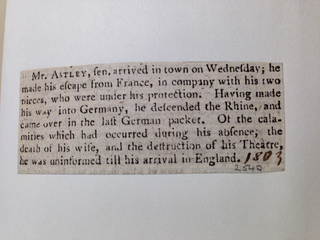 Mr. ASTLEY, ſen. arrived in town on Wedneſday; he
made his eſcape from France, in company with his two
nieces, who were under his protection. Having made
his way into Germany, he deſcended the Rhine, and
came over in the laſt German packet. Of the cala-
mities which had occurred during his abſence; the
death of his wife, and the deſtruction of his Theatre,
he was uninformed till his arrival in England. 1803
254Q